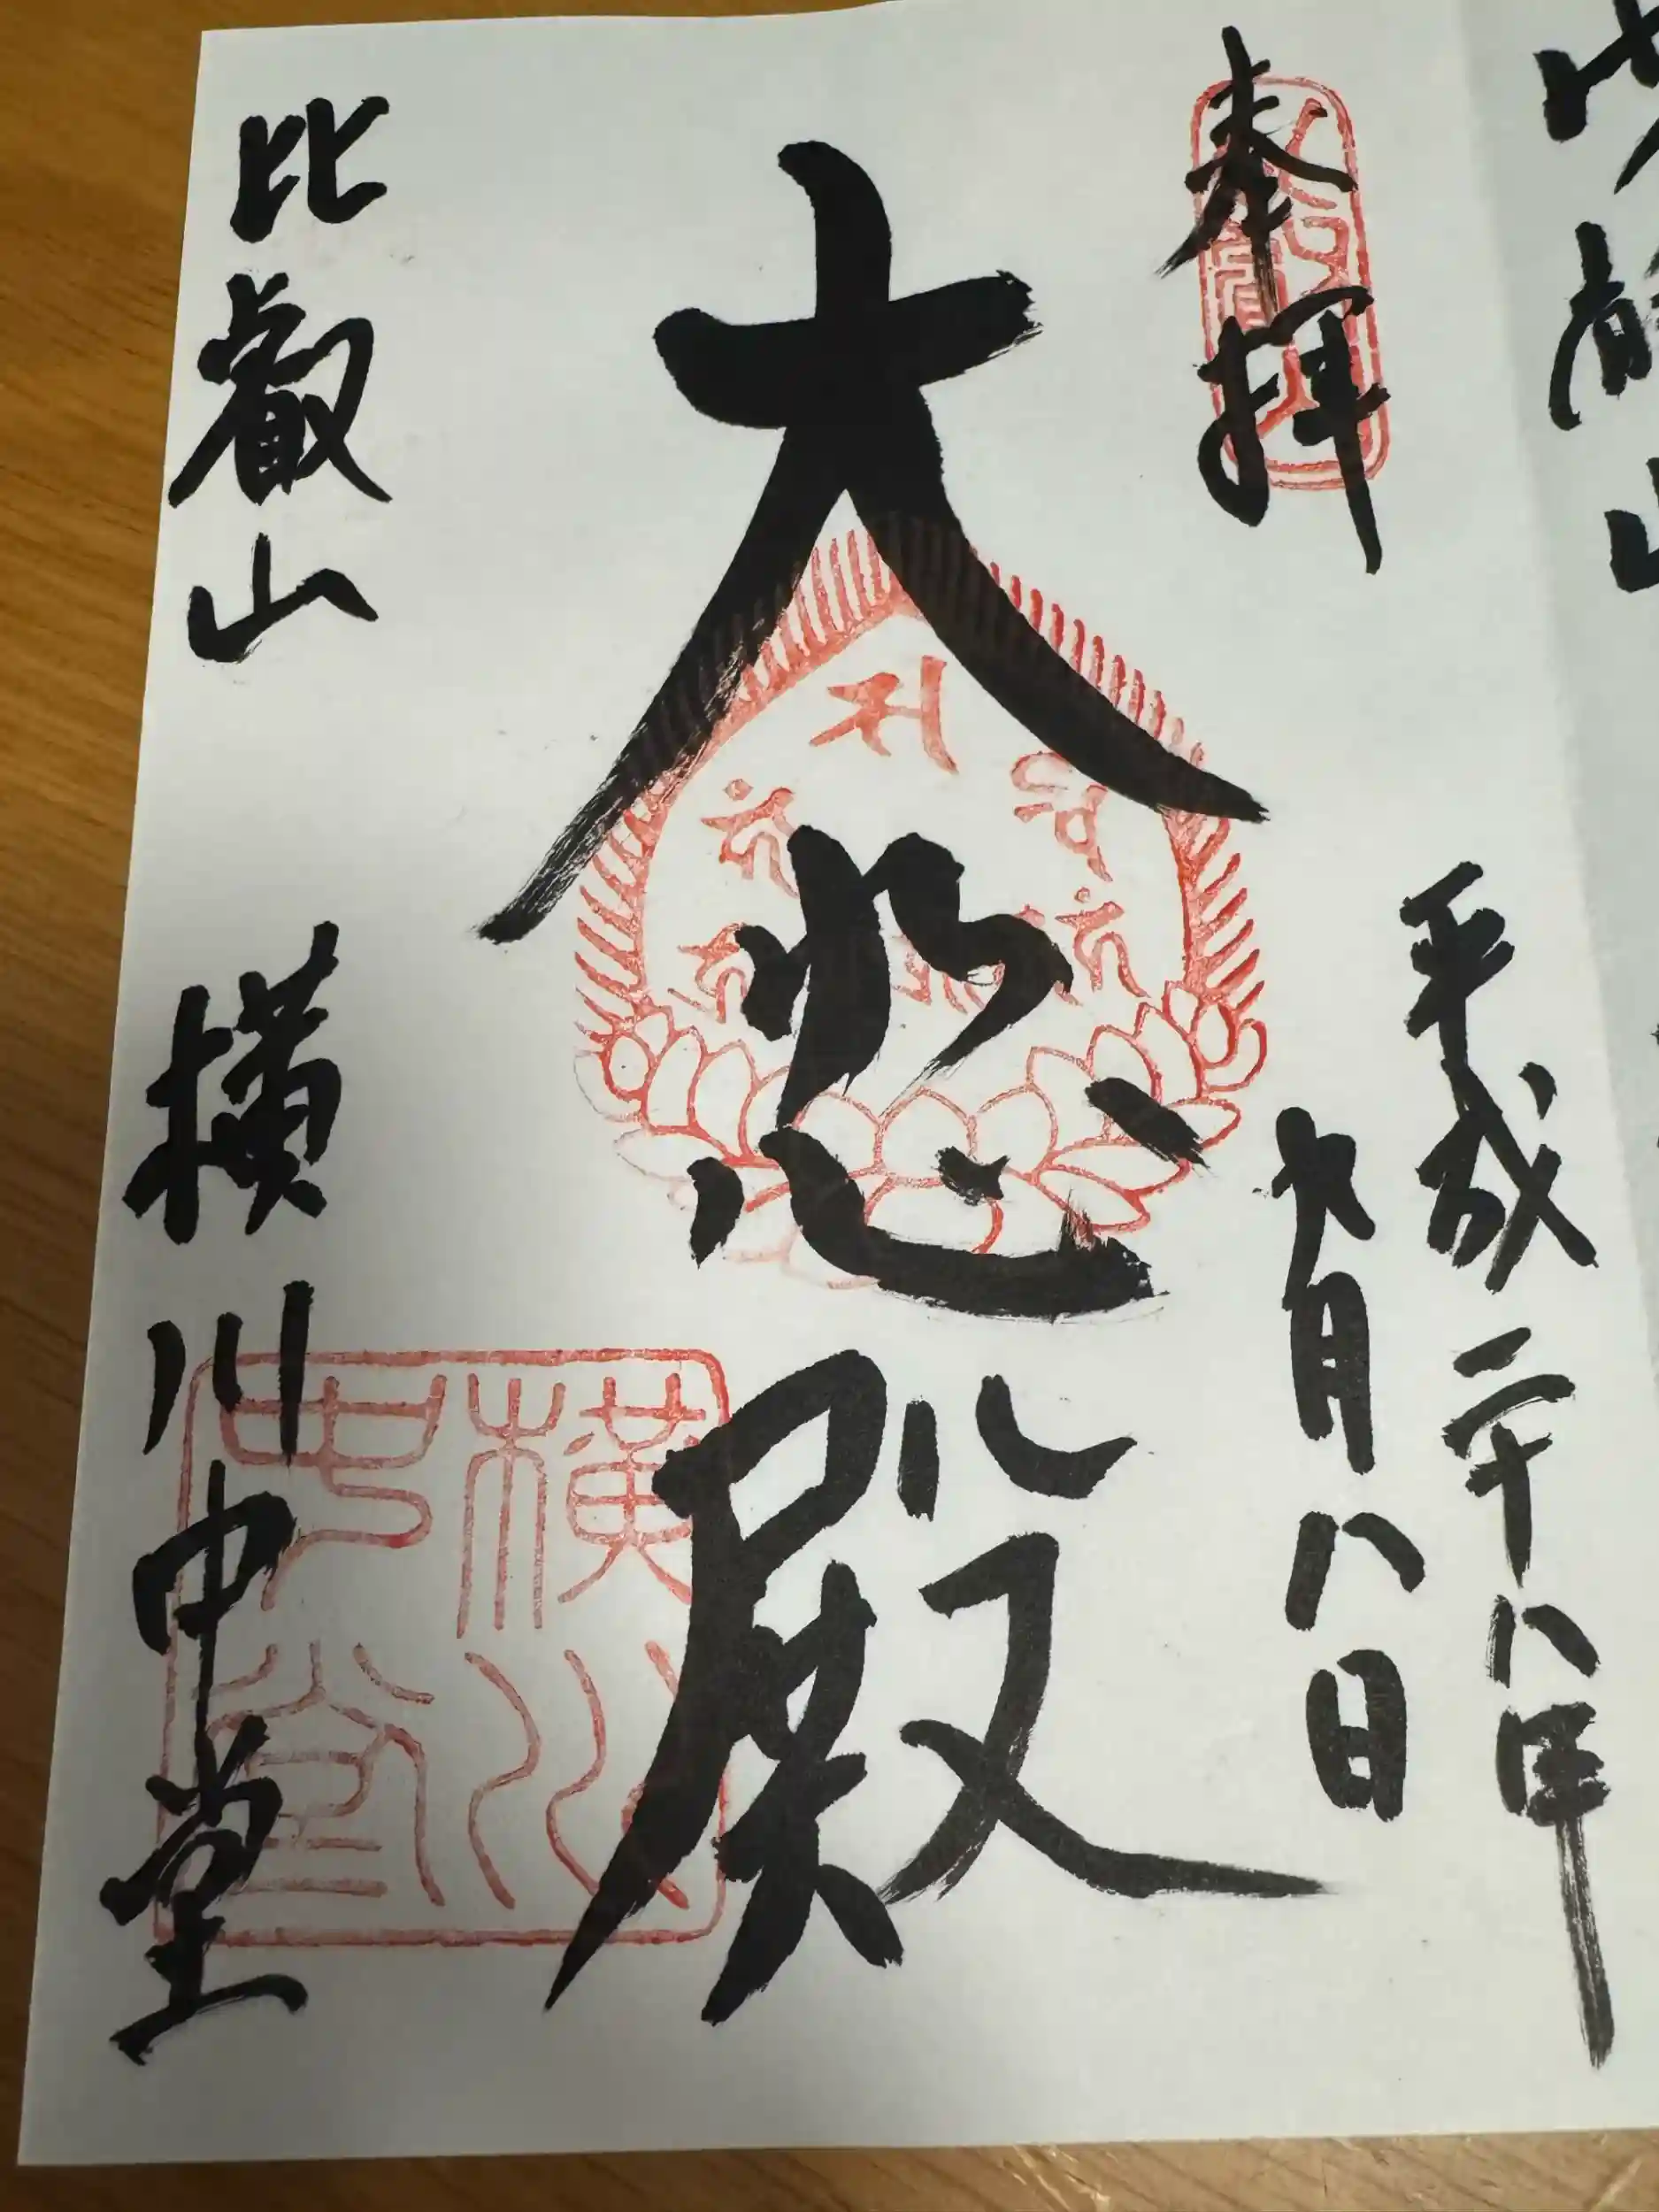 奉拝
平成二十八年
九月八日
大悲殿
比叡山
横川中堂
横川中堂